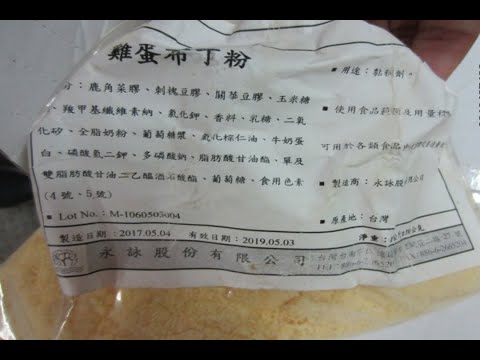 雞蛋布丁粉
分：鹿角菜膠、刺槐豆膠、關華豆膠、玉米糖
、羧甲基纖維素鈉、氯化鉀、香料、乳糖、二氧
化矽、全脂奶粉、葡萄糖漿、氫化棕仁油、牛奶蛋
白、磷酸氫二鉀、多磷酸鈉、脂肪酸甘油酯、單及
雙脂肪酸甘油二乙醯酒石酸酯、葡萄糖、食用色素
(4 號、5 號)
Lot No.：M-1060503004
製造日期：2017.05.04 有效日期：2019.05.03
永詠股份有限公司
用途：黏稠劑。
使用食品範圍及用量標
可用於各類食品
製造商：永詠股份有限公司
原產地：台灣
淨重：